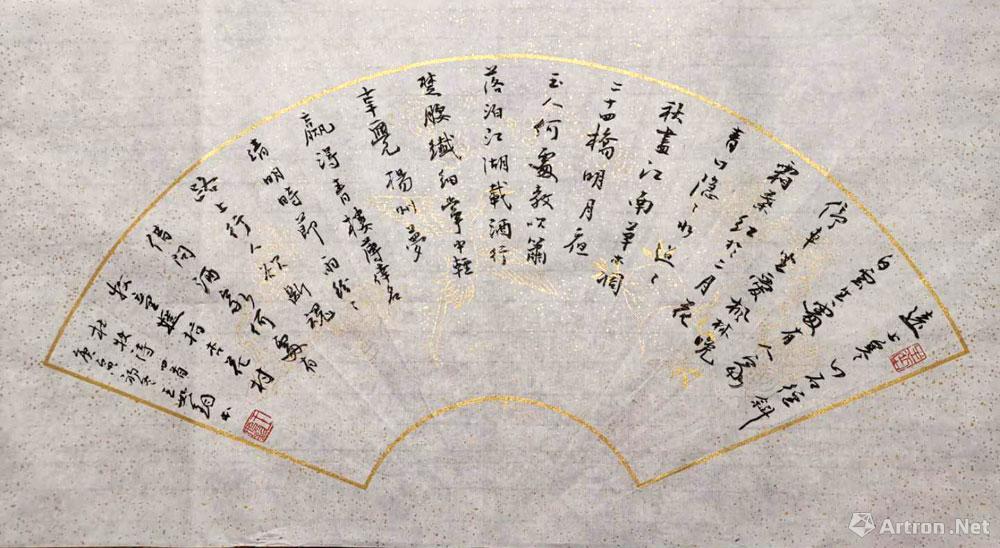 遠上寒山石徑斜
白雲生處有人家
停車坐愛楓林晚
霜葉紅於二月花
青山隱〻水迢〻
秋盡江南草木凋
二十四橋明月夜
玉人何處教吹簫
落泊江湖載酒行
楚腰纖細掌中輕
覺揚州夢
贏得青樓薄倖名
清明時節雨紛〻
路上行人欲斷魂
借問酒家何處有
牧童遙指杏花村
杜牧詩四首
Artron.Net